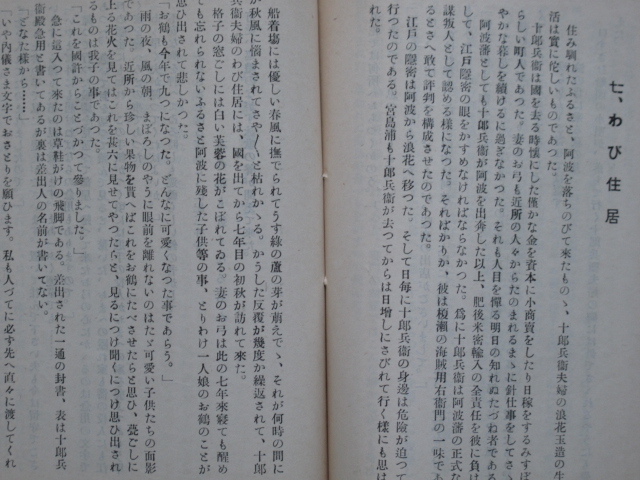 七、わび住居
住み馴れたふるさと、阿波を落ちのびて来たものゝ、十郎兵衞夫婦の浪花玉造の生
活は實に佗しいものであつた。
十郎兵衞は國を去る時懷にした僅かな金を資本に小商賣をしたり日稼をするみすぼ
らしい町人であつた。妻のお弓も近所の人々からたのまれるまゝに針仕事をしてさゝ
やかな暮しを續けるに過ぎなかつた。それも人目を憚る明日の知れぬたづね者である
阿波藩としても十郎兵衞が阿波を出奔した以上、肥後米密輸入の全責任を彼に負け
して、江戸隱密の眼をかすめなければならなかつた。爲に十郎兵衞は阿波藩の正式な
謀叛人として認める樣になつた。そればかりか、彼は榎瀬の海賊用右衞門の一味であ
るとさへ敢て評判を構成させたのであつた。
江戸の隱密は阿波から浪花へ移つた。そして日毎に十郎兵衞の身邊は危險が迫つて
行つたのである。宮島浦も十郎兵衞が去つてからは日增しにさびれて行く樣にも思は
れた。
船着場には優しい春風に撫でられてうす綠の蘆の芽が萠えでゝ、それが何時の間に
か秋風に惱まされてさや〳〵と枯れかゝる。かうした反覆が幾度か繰返されて、十郎
兵衞夫婦のわび住居には、國を出てから七年目の初秋が訪れて來た。
格子の窓ごしには白い芙蓉の花がこぼれてゐる。妻のお弓は此の七年來寢ても醒め
ても忘れられないふるさと阿波に殘した子供等の事、とりわけ一人娘のお鶴のことが
思ひ出されて悲しかつた。
「お鶴も今年で九つになつた。どんなに可愛くなつた事であらう。」
雨の夜、風の朝、まぼろしのやうに眼前を離れないのはたゞ可愛い子供たちの面影
であつた。近所から珍しい果物を貰へばこれをお鶴にたべさせたらと思ひ、甍ごしに
上る花火を見てはこれを甚六に見せてやつたらと、見るにつけ聞くにつけ思ひ出され
るものは我子の事であつた。
「これを國許からことづかつて參りました。」
急に這入つて來たのは草鞋がけの飛脚である。差出された一通の封書、表は十郎兵
衞殿急用と書いてあるが裏は差出人の名前が書いてない。
「どなた樣から……」
「いや內儀さま文字でおさとりを願ひます。私も人づてに必ず先へ直々に渡してくれ